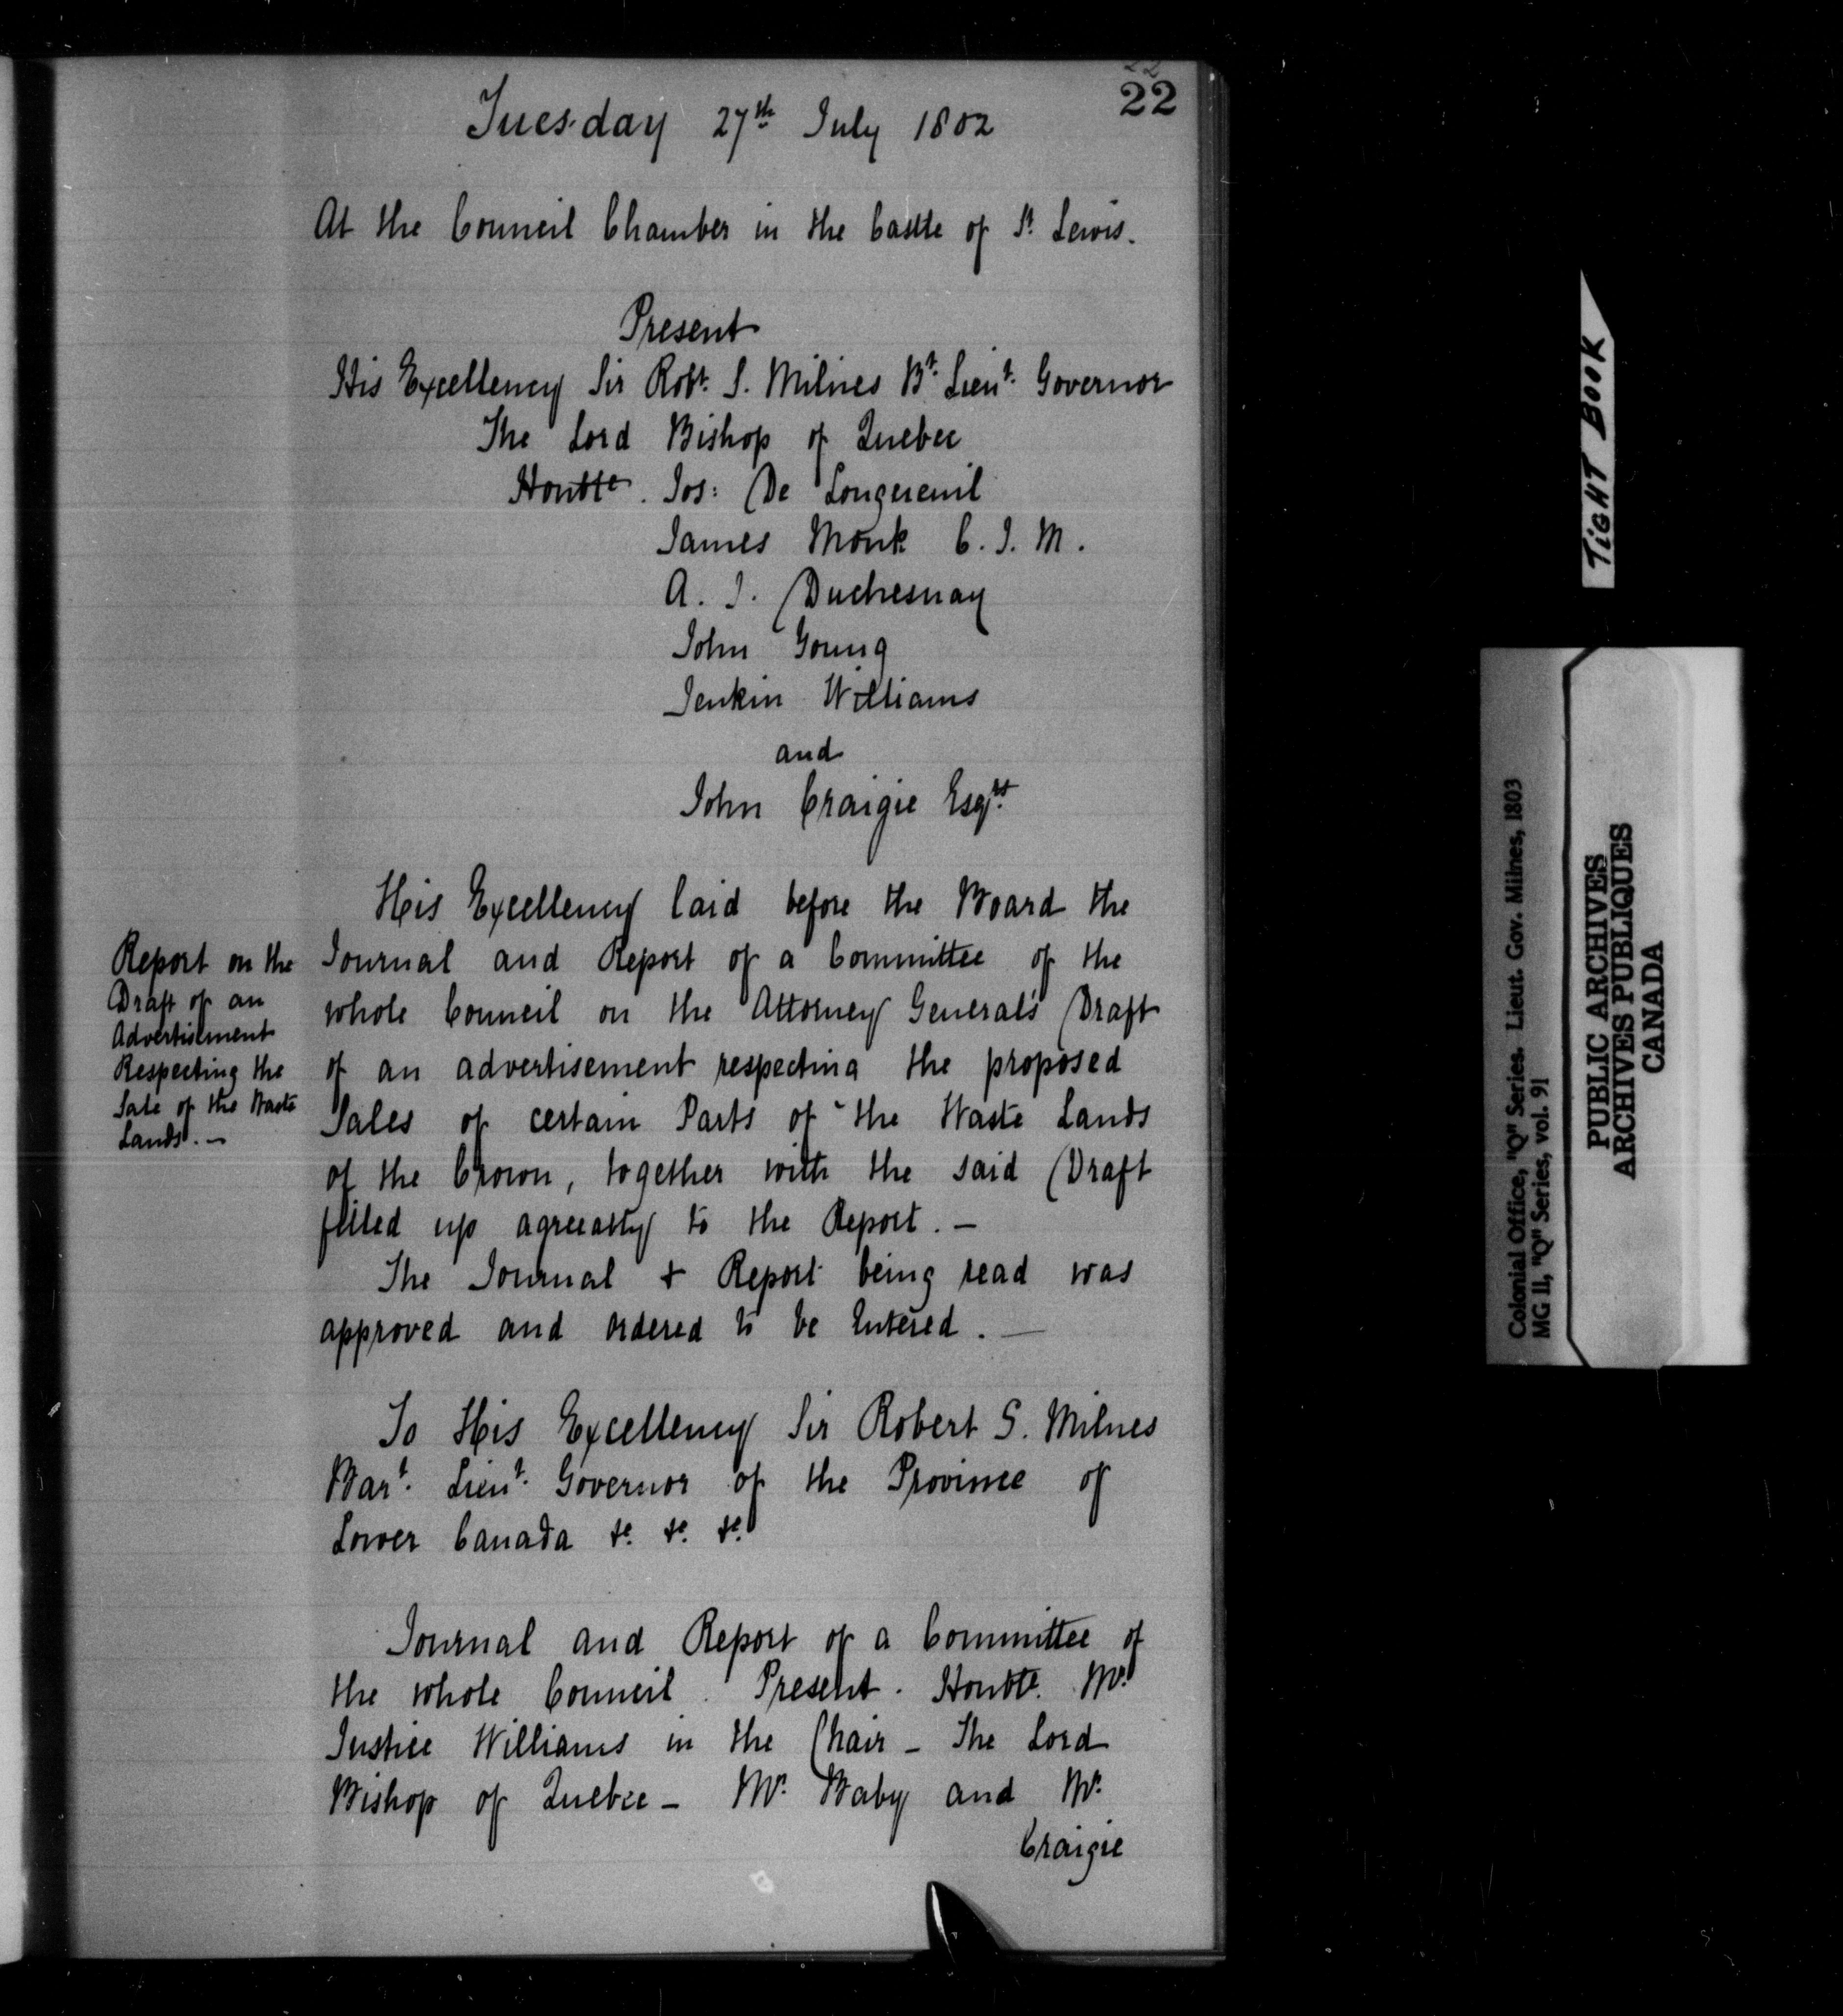 22
22
Tuesday 27th July 1802
At the Council Chamber in the Castle of St. Lewis.
Present
His Excellency Sir Robt. S. Milnes Bt. Lieut. Governor
The Lord Bishop of Quebec
Honble. Jos: De Longueuil
James Monk C. J. M.
A. J. Duchesnay
John Young
Jenkin Williams
and
John Craigie Esqrs.
His Excellency laid before the Board the
Journal and Report of a Committee of the
whole Council on the Attorney General's Draft
of an advertisement respecting the proposed
Sales of certain Parts of the Waste Lands
of the Crown, together with the said Draft
filled up agreeably to the Report. —
Report on the
Draft of an
Advertisement
Respecting the
Sale of the Waste
Lands. —
The Journal + Report being read was
approved and ordered to be Entered. —
To His Excellency Sir Robert S. Milnes
Bart. Lieut. Governor of the Province of
Lower Canada &c. &c. &c.
Journal and Report of a Committee of
the whole Council. Present. Honble. Mr.
Justice Williams in the Chair — The Lord
Bishop of Quebec — Mr. Baby and Mr.
Craigie
TIGHT BOOK
Colonial Office, "Q" Series. Lieut. Gov. Milnes, 1803
MG 11, "Q" Series, vol. 91
PUBLIC ARCHIVES
ARCHIVES PUBLIQUES
CANADA